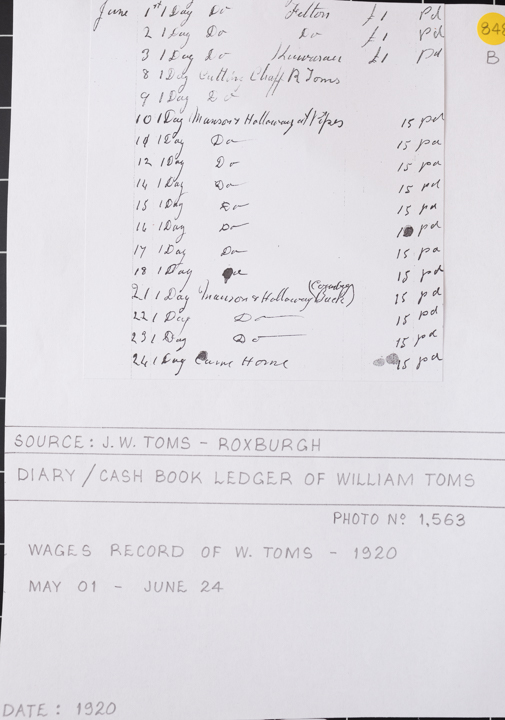 June 1st 1 Day Do Felton £1 Pd
2 1 Day Do Do £1 Pd
3 1 Day Do £1 Pd
8 1 Day Cuttin Chaff R Toms
9 1 Day Do
10 1 Day Manson & Holloway at Pipes 15 pd
11 1 Day Do 15 pd
12 1 Day Do 15 pd
14 1 Day Do 15 pd
15 1 Day Do 15 pd
16 1 Day Do 15 pd
17 1 Day Do 15 pd
18 1 Day Do 15 pd
21 1 Day Manson & Holloway 15 pd
22 1 Day Do 15 pd
23 1 Day Do 15 pd
24 1 Day Came Home 15 pd
848
B
SOURCE: J.W. TOMS - ROXBURGH
DIARY / CASH BOOK LEDGER OF WILLIAM TOMS
PHOTO No 1,563
WAGES RECORD OF W. TOMS - 1920
MAY 01 - JUNE 24
DATE: 1920